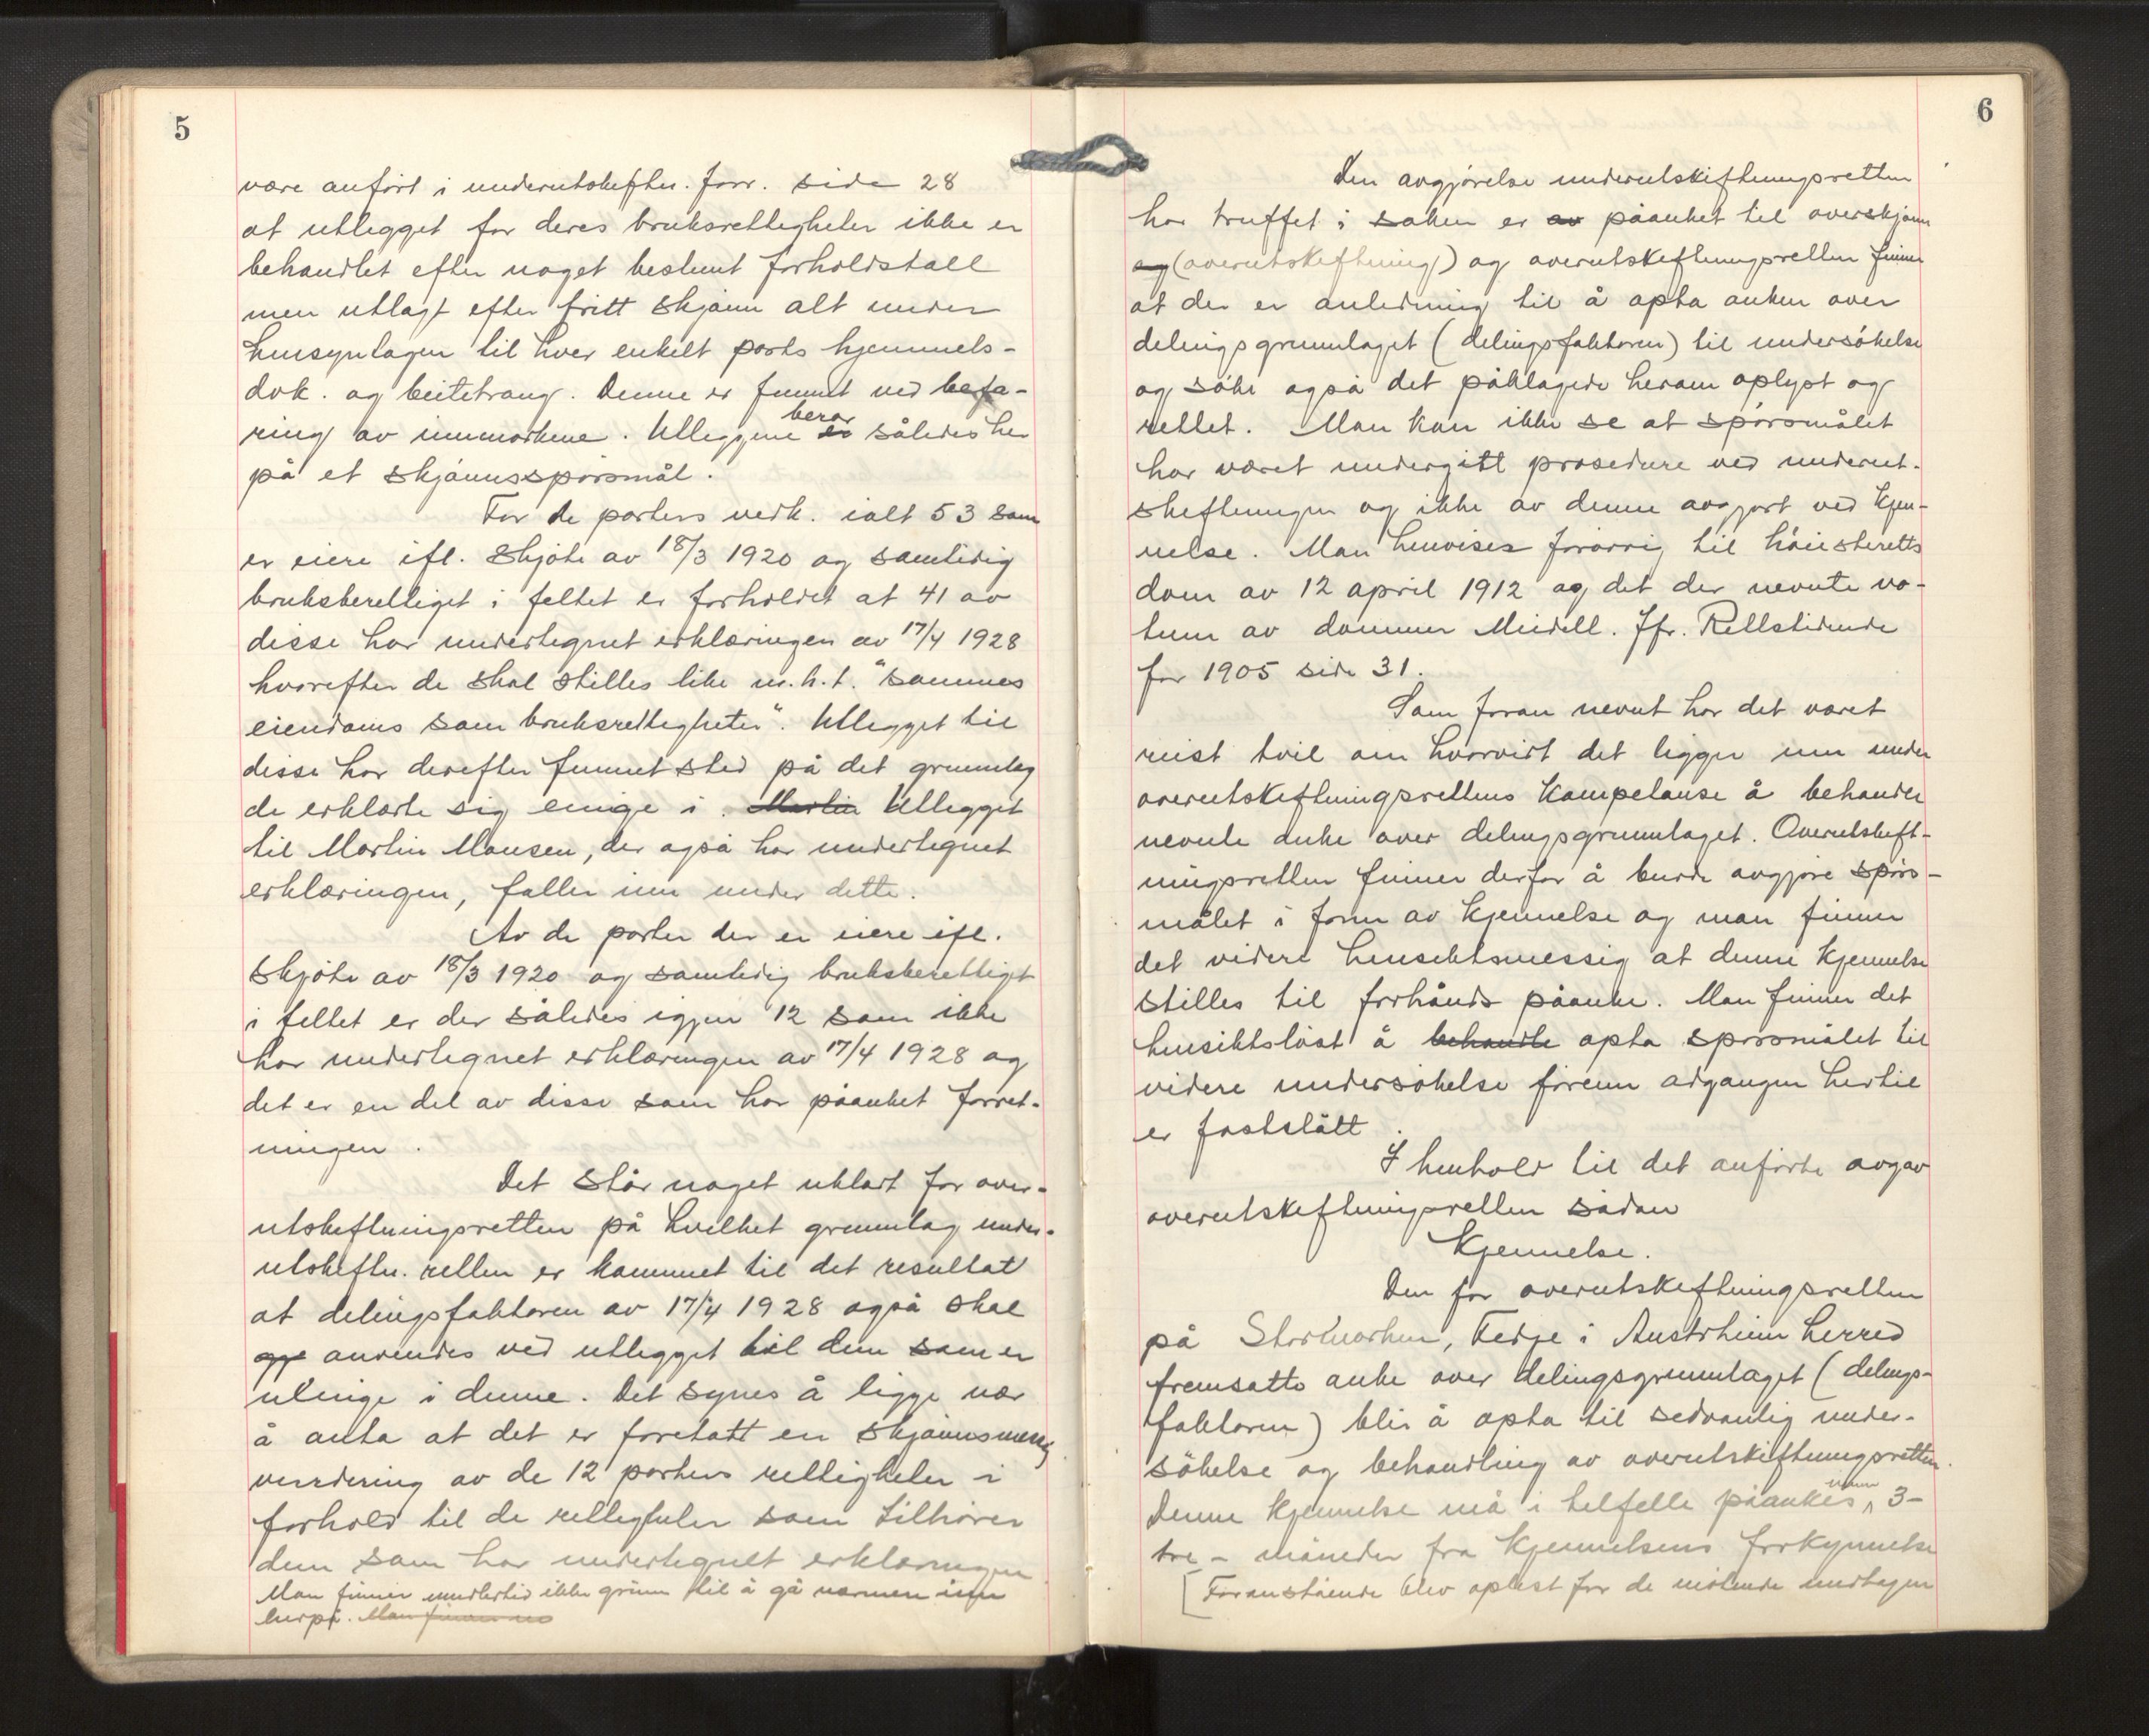 5
være anført i underutskiftn. forr. side 28
at utlegget for deres bruksrettigheter ikke er
behandlet efter noget bestemt forholdstall
men utlagt efter fritt skjønn alt under
hensyntagen til hver enkelt parts hjemmels-
dok. og beitetrang. Denne er funnet ved befa-
ring av innmarkene. Utleggene beror således her
på et skjønnsspørsmål.
For de parters vedk. ialt 53 som
er eiere ifl. skjøte av 18/3 1920 og samtidig
bruksberettiget i feltet er forholdet at 41 av
disse har undertegnet erklæringen av 17/4 1928
hvorefter de skal stilles like m.h.t. "sammes
eiendoms som bruksrettigheter". Utlegget til
disse har derefter funnet sted på det grunnlag
de erklærte sig enige i. Martin Utlegget
til Martin Monsen, der også har undertegnet
erklæringen, faller inn under dette.
Av de parter der er eiere ifl.
skjøte av 18/3 1920 og samtidig bruksberettiget
i feltet er der således igjen 12 som ikke
har undertegnet erklæringen av 17/4 1928 og
det er en del av disse som har påanket forret-
ningen.
Det står noget uklart for over-
utskiftningsretten på hvilket grunnlag under-
utskiftn. retten er kommet til det resultat
at delingsfaktoren av 17/4 1928 også skal
anvendes ved utlegget til dem som er
uenige i denne. Det synes å ligge nær
å anta at det er foretatt en skjønnsmessig
vurdering av de 12 parters rettigheter i
forhold til de rettigheter som tilhører
dem som har undertegnet erklæringen
Man finner imidlertid ikke grunn til å gå nærmere inn
herpå. Man finner
6
Den avgjørelse underutskiftningsretten
har truffet i saken er av påanket til overskjønn
og (overutskiftning) og overutskiftningsretten finner
at der er anledning til å opta anken over
delingsgrunnlaget (delingsfaktoren) til undersøkelse
og søke også det påklagede herom oplyst og
rettet. Man kan ikke se at spørsmålet
har været undergitt prosedure ved underut-
skiftningen og ikke av denne avgjort ved kjen-
nelse. Man henviser forøvrig til høiesteretts
dom av 12 april 1912 og det der nevnte vo-
tum av dommer Meidell. Jfr. Rettstidende
for 1905 side 31.
Som foran nevnt har det været
reist tvil om hvorvidt det ligger inn under
overutskiftningsrettens kompetanse å behandle
nevnte anke over delingsgrunnlaget. Overutskift-
ningsretten finner derfor å burde avgjøre spørs-
målet i form av kjennelse og man finner
det videre hensiktsmessig at denne kjennelse
stilles til forhånds påanke. Man finner det
hensiktsløst å behandle opta spørsmålet til
videre undersøkelse førenn adgangen hertil
er fastslått.
I henhold til det anførte avgav
overutskiftningsretten sådan
Kjennelse.
Den for overutskiftningsretten
på Stormarken, Fedje i Austrheim herred
fremsatte anke over delingsgrunnlaget (delings-
faktoren) blir å opta til sedvanlig under-
søkelse og behandling av overutskiftningsretten.
Denne kjennelse må i tilfelle påankes innen 3-
tre - måneder fra kjennelsens forkynnelse
[Foranstående blev oplest for de møtende undtagen